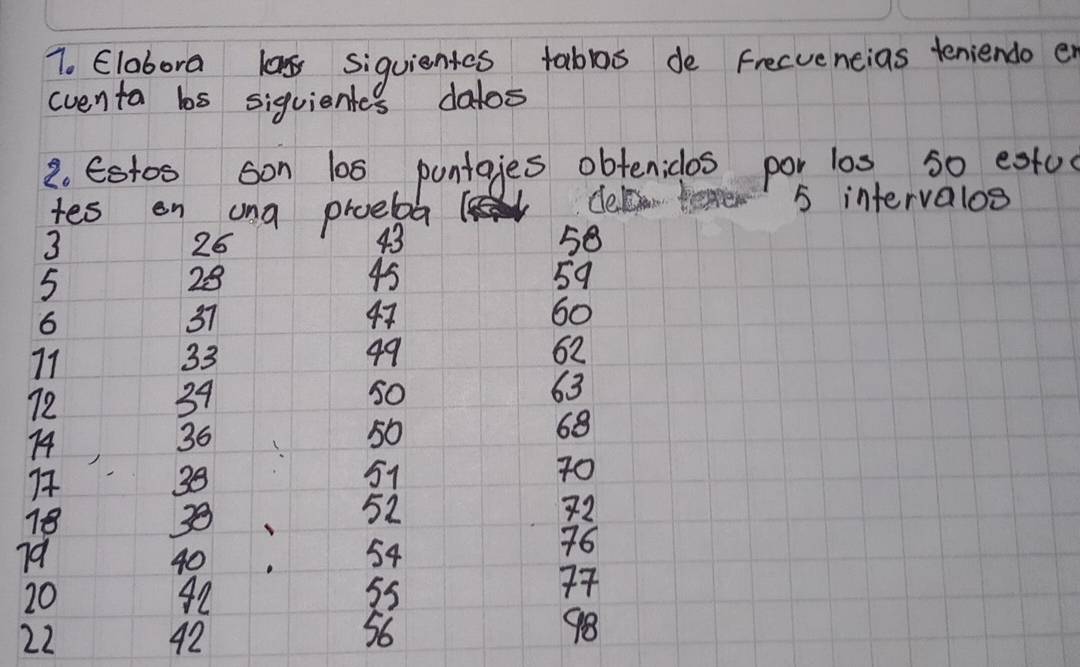 1. Elabora las siguientes tablas de Frecuencias teniendo en
cuenta los siguientes datos
2. Estos son los puntajes obtenidos por los 50 estud
tes en una prueba 5 intervalos
3 26 43 58
5 28 45 59
6 31 47 60
11 33 49 62
12 34 50 63
14 36 50 68
17 38 51 70
18 38 52 72
19 40 54 76
20 42 55 77
22 42 56 98